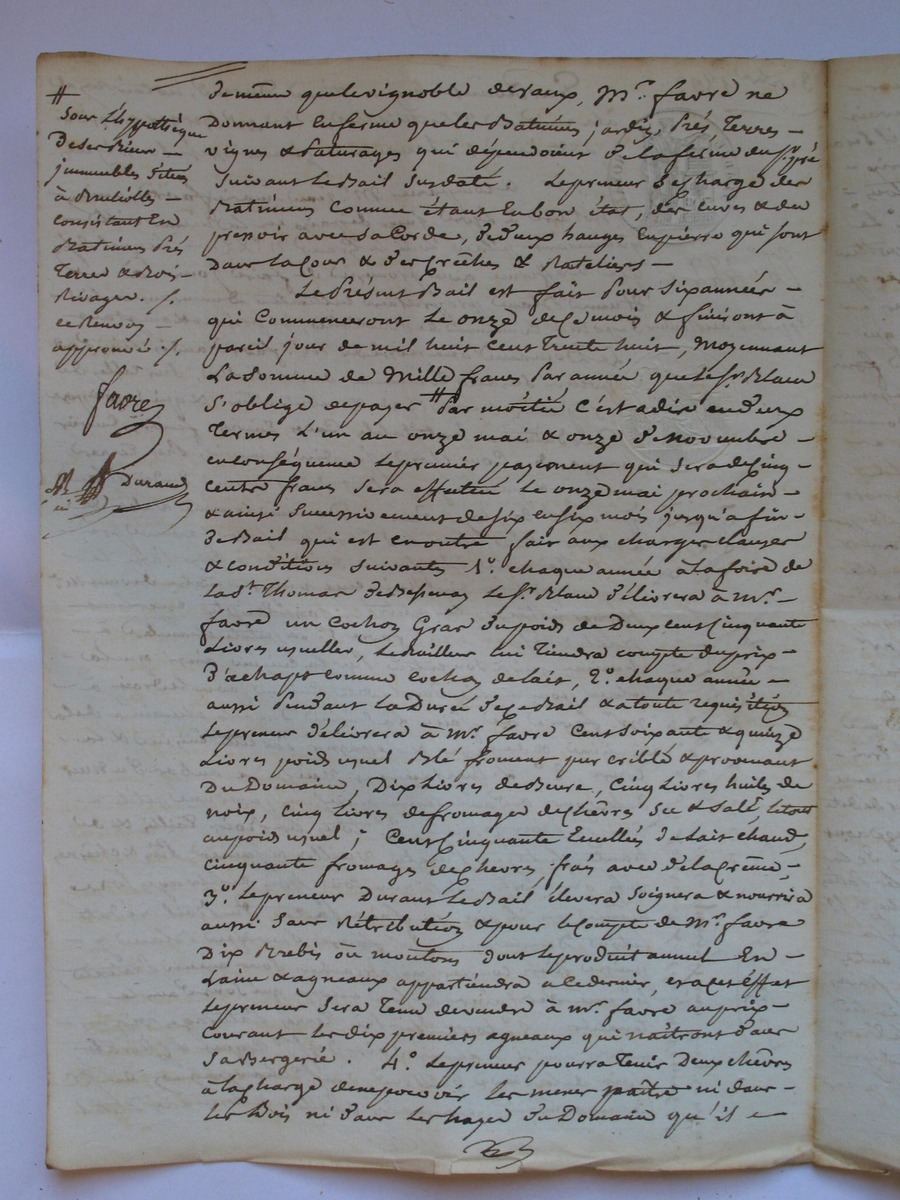 #
sous l'hypothèque
de ses biens –
immeubles situés
à
consistant en
Batimens Prés
Terres & Bois –
Rivages. /.
ce Renvoy –
approuvé ./.
favre
Durand
de même que le vignoble de vaux, Mr. favre ne
Donnant en ferme que les Batimens, jardin, Prés, Terres –
vignes & Paturages qui dépendoient de la ferme du Sr.
suivant le Bail susdaté. Le preneur se charge des
Batimens comme étant en bon état, des cuves & du
pressoir avec sa Corde, de deux bauges en pierre qui sont
Dans la Cour & des Crêches & Rateliers –
Le Présent Bail est fait Pour six années –
qui Commenceront le onze de ce mois & finiront à
pareil jour de mil huit cent Trente huit, Moyennant
La Somme de Mille francs Par année que le Sr. Blanc
s'oblige de payer # Par moitié c'est a dire en deux
Termes L'un au onze mai & onze de novembre –
en conséquence le premier payement qui sera de Cinq
Cents francs sera effectué le onze mai prochain –
& ainsi Successivement de six en six mois jusqu'a fin –
de Bail qui est en outre fait aux charges clauses
& conditions suivantes 1°. chaque année à la foire de
la St. Thomas de le Sr. Blanc délivrera à Mr. –
favre un Cochon Gras du poids de Deux cent Cinquante
Livres usuelles, le Bailleur lui Tiendra compte du prix –
d'achapt comme cochon de lait, 2°. chaque année –
aussi Pendant la Durée de ce Bail & a toute requisition
le preneur délivrera à Mr. favre Cent soixante & quinze
Livres poids usuel Blé froment pur criblé & provenant
Du Domaine, Dix Livres de Beure, Cinq Livres huile de
noix, cinq Livres de fromages de Chèvres sec & salé, le tout
au poids usuel; Cent Cinquante Ecuellés de lait chaud,
cinquante fromages de chevres, frais avec de la Crême, –
3°. Le preneur Durant le Bail élevera soignera & nourrira
aussi sans Rétribution & pour le Compte de Mr. favre
Dix Brebis ou moutons dont le produit annuel En –
Laine & agneaux appartiendra a ce dernier, et a cet éffet
le preneur sera Tenu de vendre à Mr. favre au prix –
Courant les dix premiers agneaux qui naîtront dans
sa Bergerie. 4°. Le preneur pourra Tenir Deux chêvres
à la charge de ne pouvoir les mener paître ni dans –
les Bois ni dans les hayes du Domaine qu'il